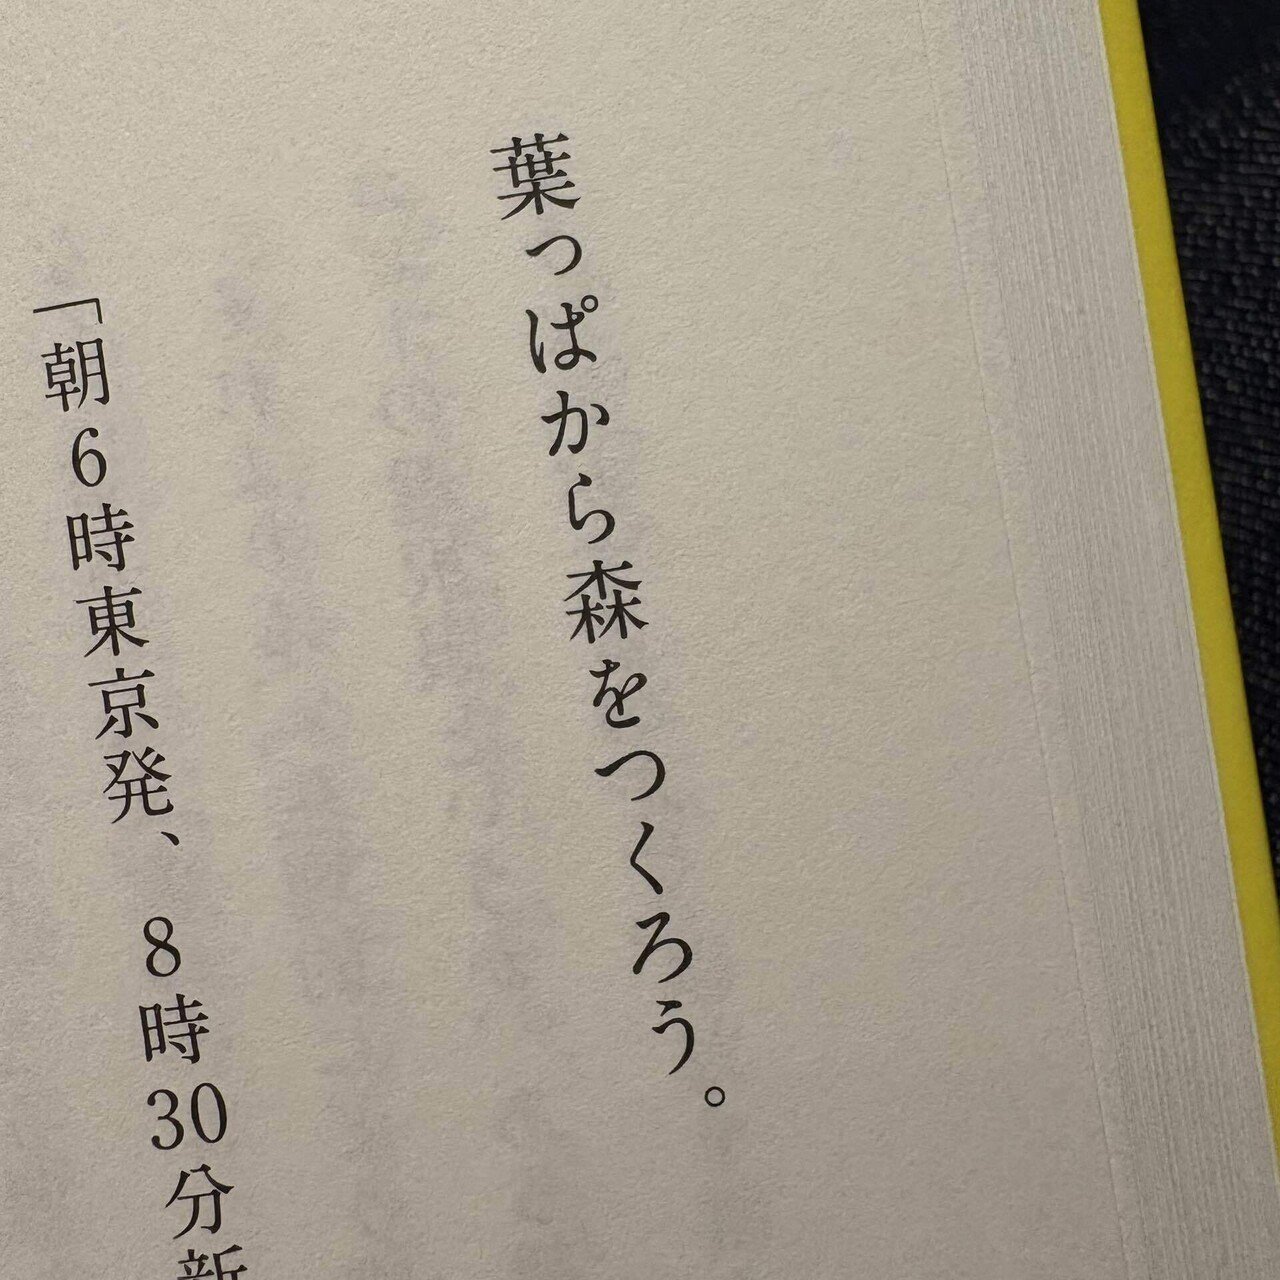 葉っぱから森をつくろう。
「朝6時東京発、8時30分新